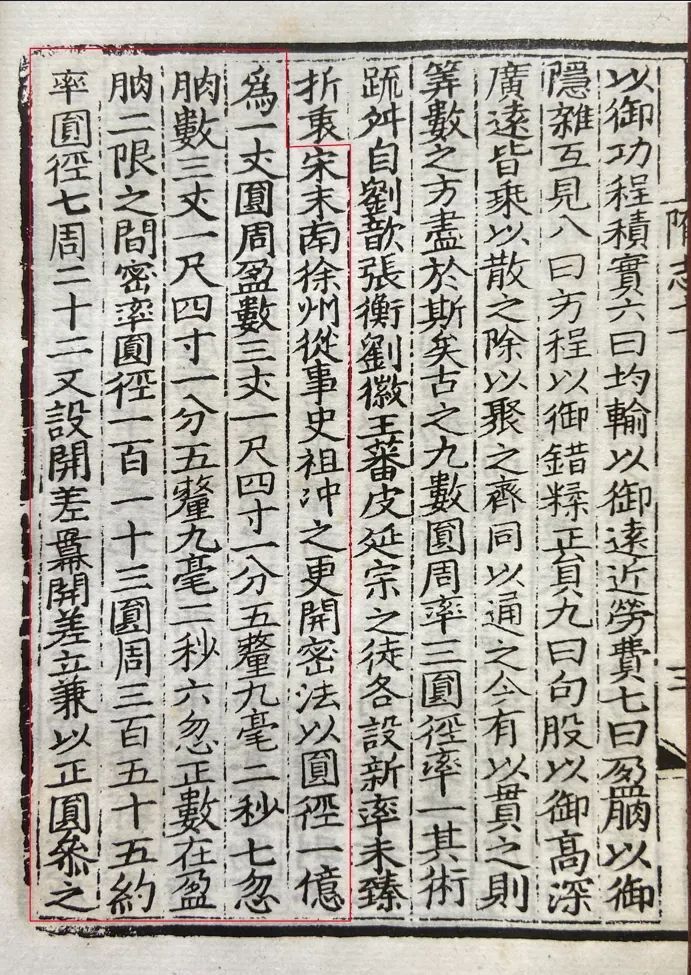 隋志十一
三
以御功程積實六曰均輸以御遠近勞費七曰盈朒以御
隱雜互見八曰方程以御錯糅正負九曰句股以御高深
廣遠皆乗以散之除以聚之齊同以通之今有以貫之則
筭數之方盡於斯矣古之九數圓周率三圓徑率一其術
踈舛自劉歆張衡劉徽王蕃皮延宗之徒各設新率未臻
折衷宋末南徐州從事史祖沖之更開密法以圓徑一億
爲一丈圓周盈數三丈一尺四寸一分五釐九毫二秒七忽
朒數三丈一尺四寸一分五釐九毫二秒六忽正數在盈
朒二限之間密率圓徑一百一十三圓周三百五十五約
率圓徑七周二十二又設開差羃開差立兼以正圓叅之